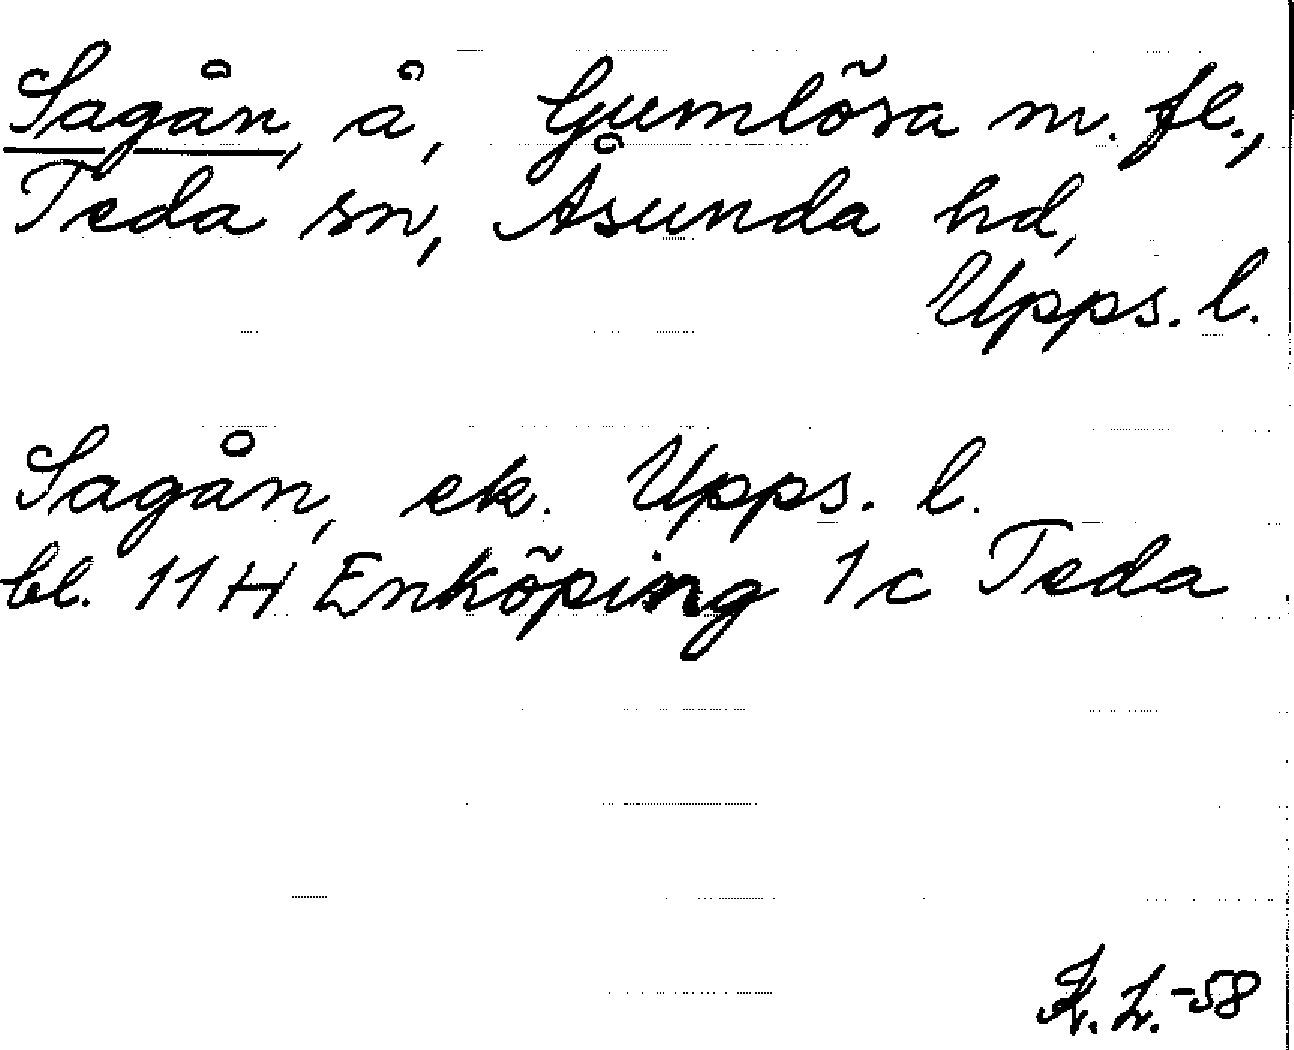 Sagån, å, Gumlösa m. fl.,
Teda sn, Åsunda hd,
Upps. l.
Sagån, ek. Upps. l.
bl. 11 H Enköping 1 c Teda
K. L. -58